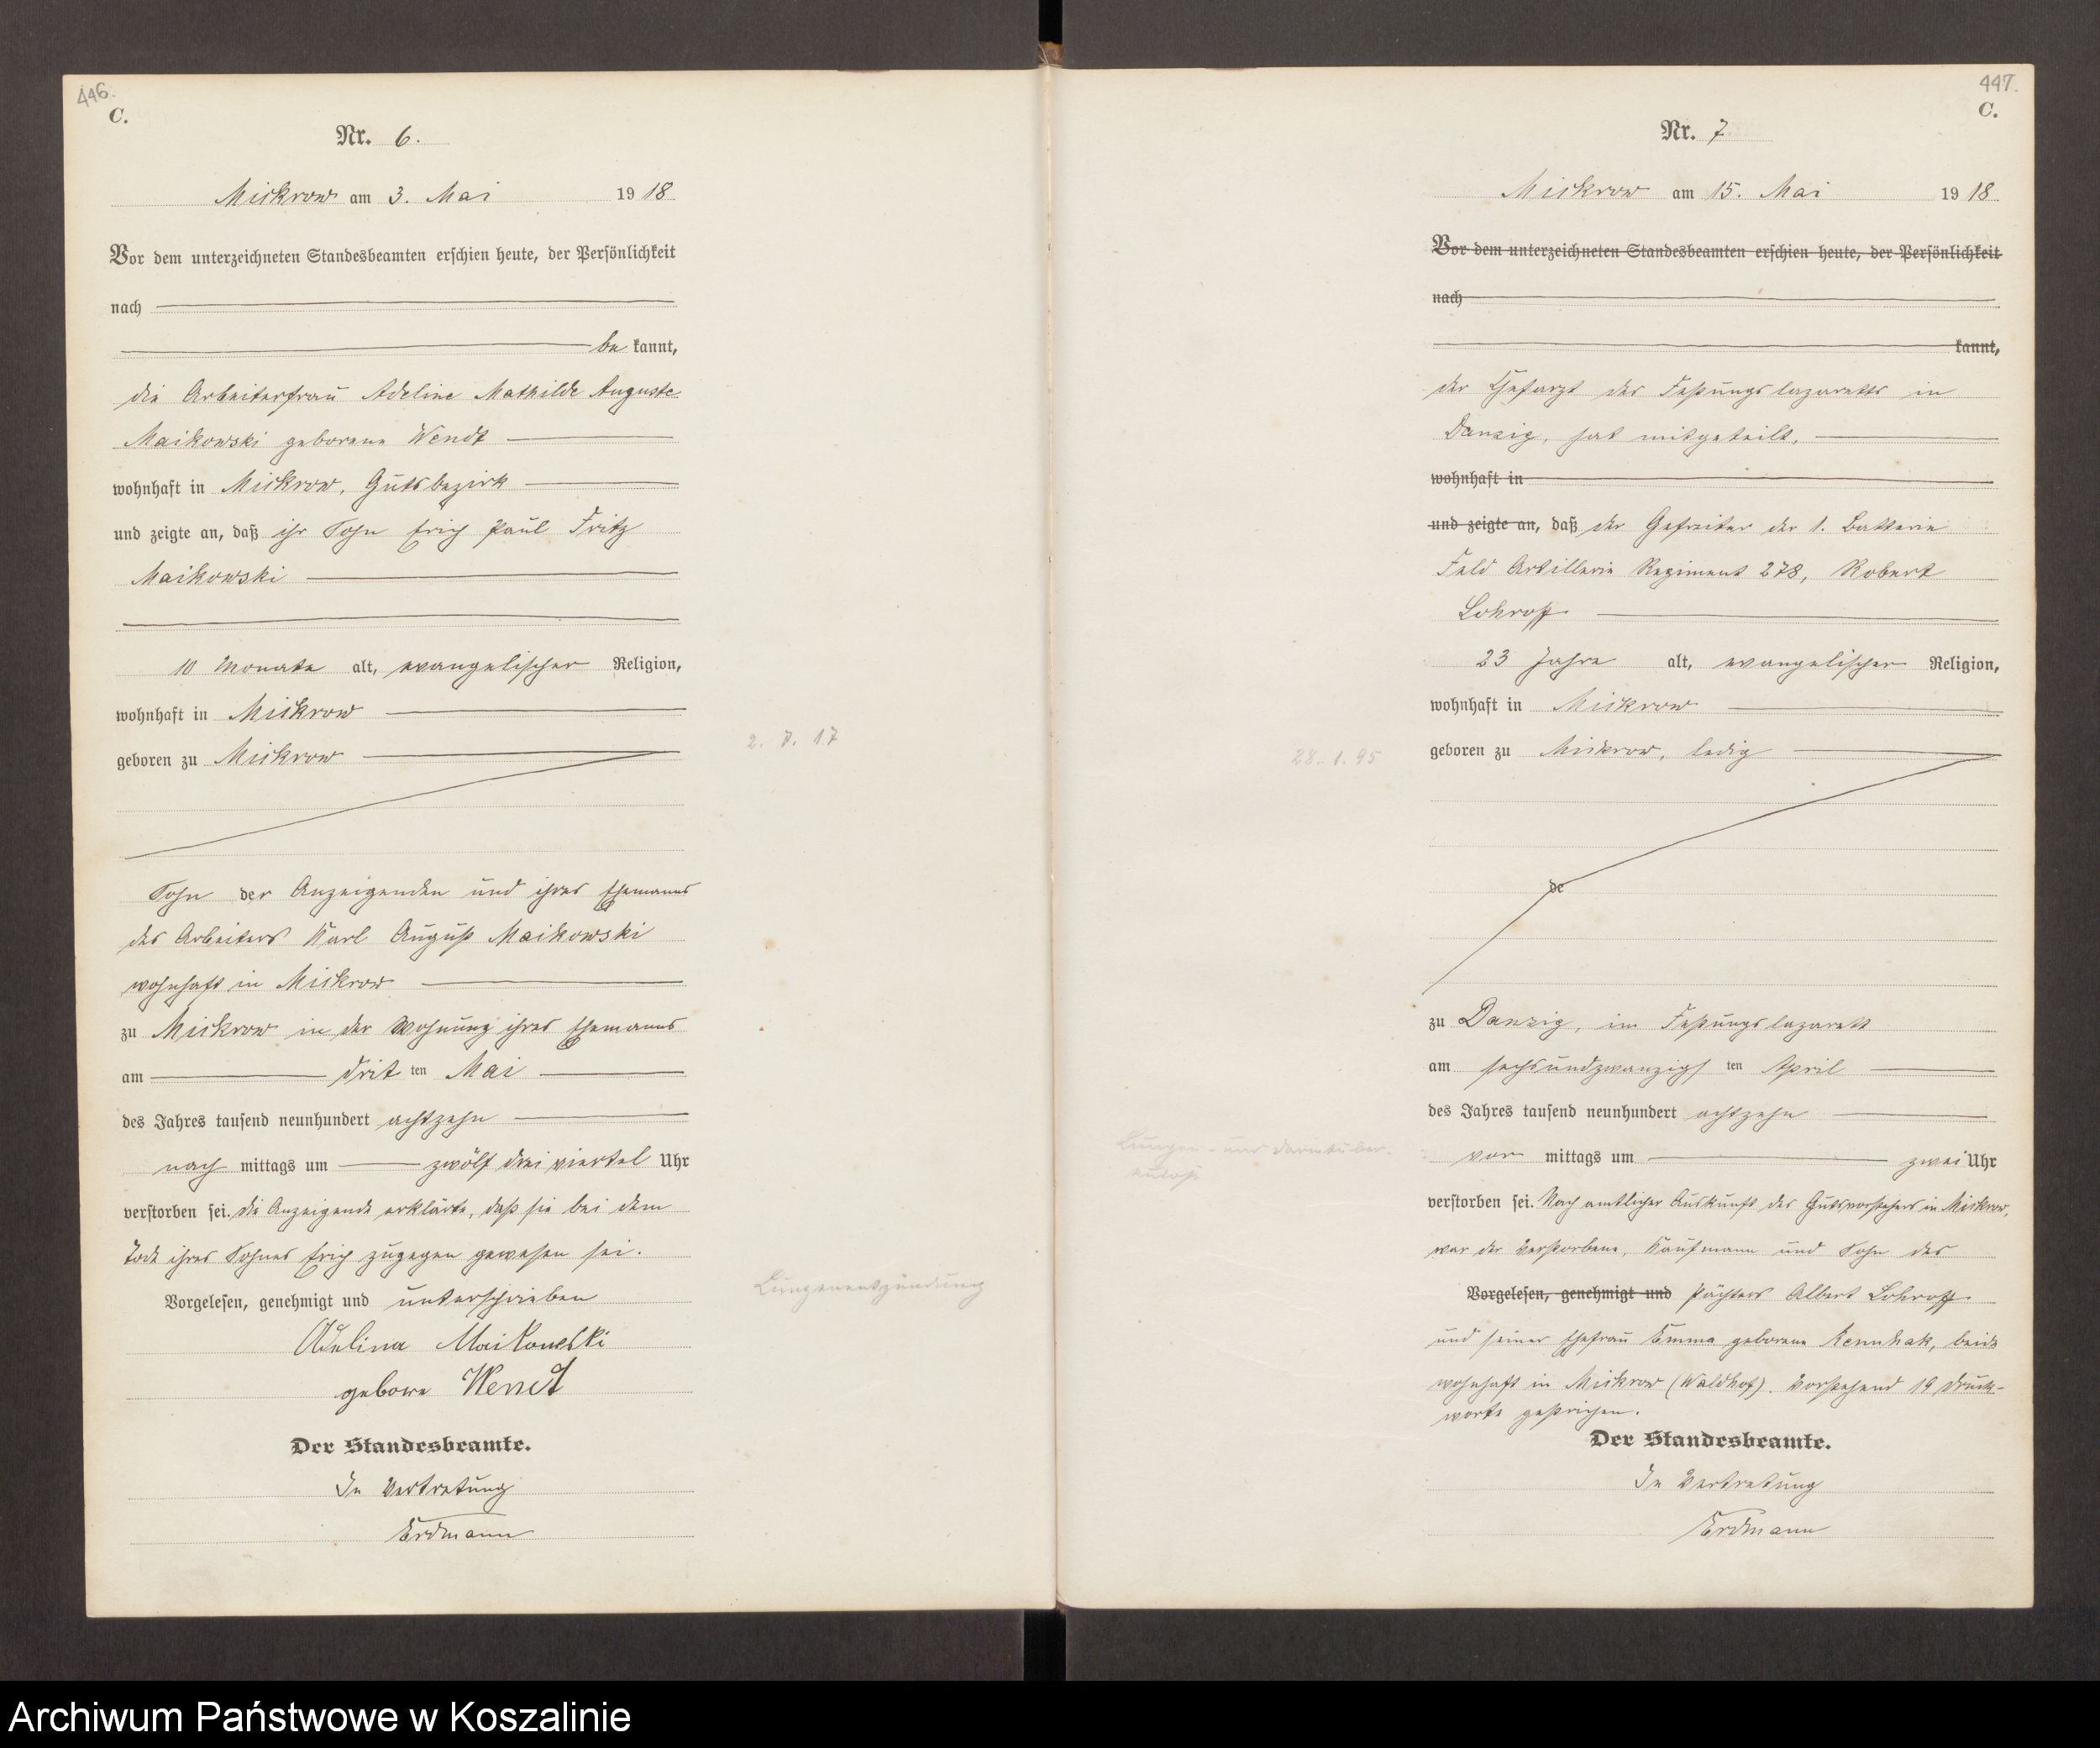 446.
C.
Nr. 6.
Mickrow am 3. Mai 1918
Vor dem unterzeichneten Standesbeamten erschien heute, der Persönlichkeit
nach
be kannt,
die Arbeiterfrau Adeline Mathilde Auguste
Maikowski geborene Wendt
wohnhaft in Mickrow, Gutsbezirk
und zeigte an, daß ihr Sohn Erich Paul Fritz
Maikowski
10 Monate alt, evangelischer Religion,
wohnhaft in Mickrow
geboren zu Mickrow
2. 7. 17
Sohn der Anzeigenden und ihres Ehemanns
des Arbeiters Karl August Maikowski
wohnhaft in Mickrow
zu Mickrow in der Wohnung ihres Ehemanns
am dritten Mai
des Jahres tausend neunhundert achtzehn
nach mittags um zwölf drei viertel Uhr
verstorben sei. Die Anzeigende erklärte, daß sie bei dem
Tode ihres Sohnes Erich zugegen gewesen sei.
Lungenentzündung
Vorgelesen, genehmigt und unterschrieben
Adelina Maikowski
gebore Wendt
Der Standesbeamte.
In Vertretung
Erdmann
447.
C.
Nr. 7
Mickrow am 15. Mai 1918
Vor dem unterzeichneten Standesbeamten erschien heute, der Persönlichkeit
nach
kannt,
der Chefarzt des Festungslazaretts in
Danzig, hat mitgeteilt,
wohnhaft in
und zeigte an, daß der Gefreiter der 1. Batterie
Feld Artillerie Regiment 278, Robert
Lohroff
23 Jahre alt, evangelischer Religion,
wohnhaft in Mickrow
geboren zu Mickrow, ledig
28. 1. 95
de
zu Danzig, im Festungslazarett
am sechsundzwanzigsten April
des Jahres tausend neunhundert achtzehn
Lungen- und Darmtuber-
kulose
vor mittags um zwei Uhr
verstorben sei. Nach amtlicher Auskunft des Gutsvorstehers in Mickrow,
war der Verstorbene, Kaufmann und Sohn des
Vorgelesen, genehmigt und Pächters Albert Lohroff
und seiner Ehefrau Emma geborene, beide
wohnhaft in Mickrow (Waldhof). Vorstehend 19 Druck-
worte gestrichen.
Der Standesbeamte.
In Vertretung
Erdmann
Archiwum Państwowe w Koszalinie